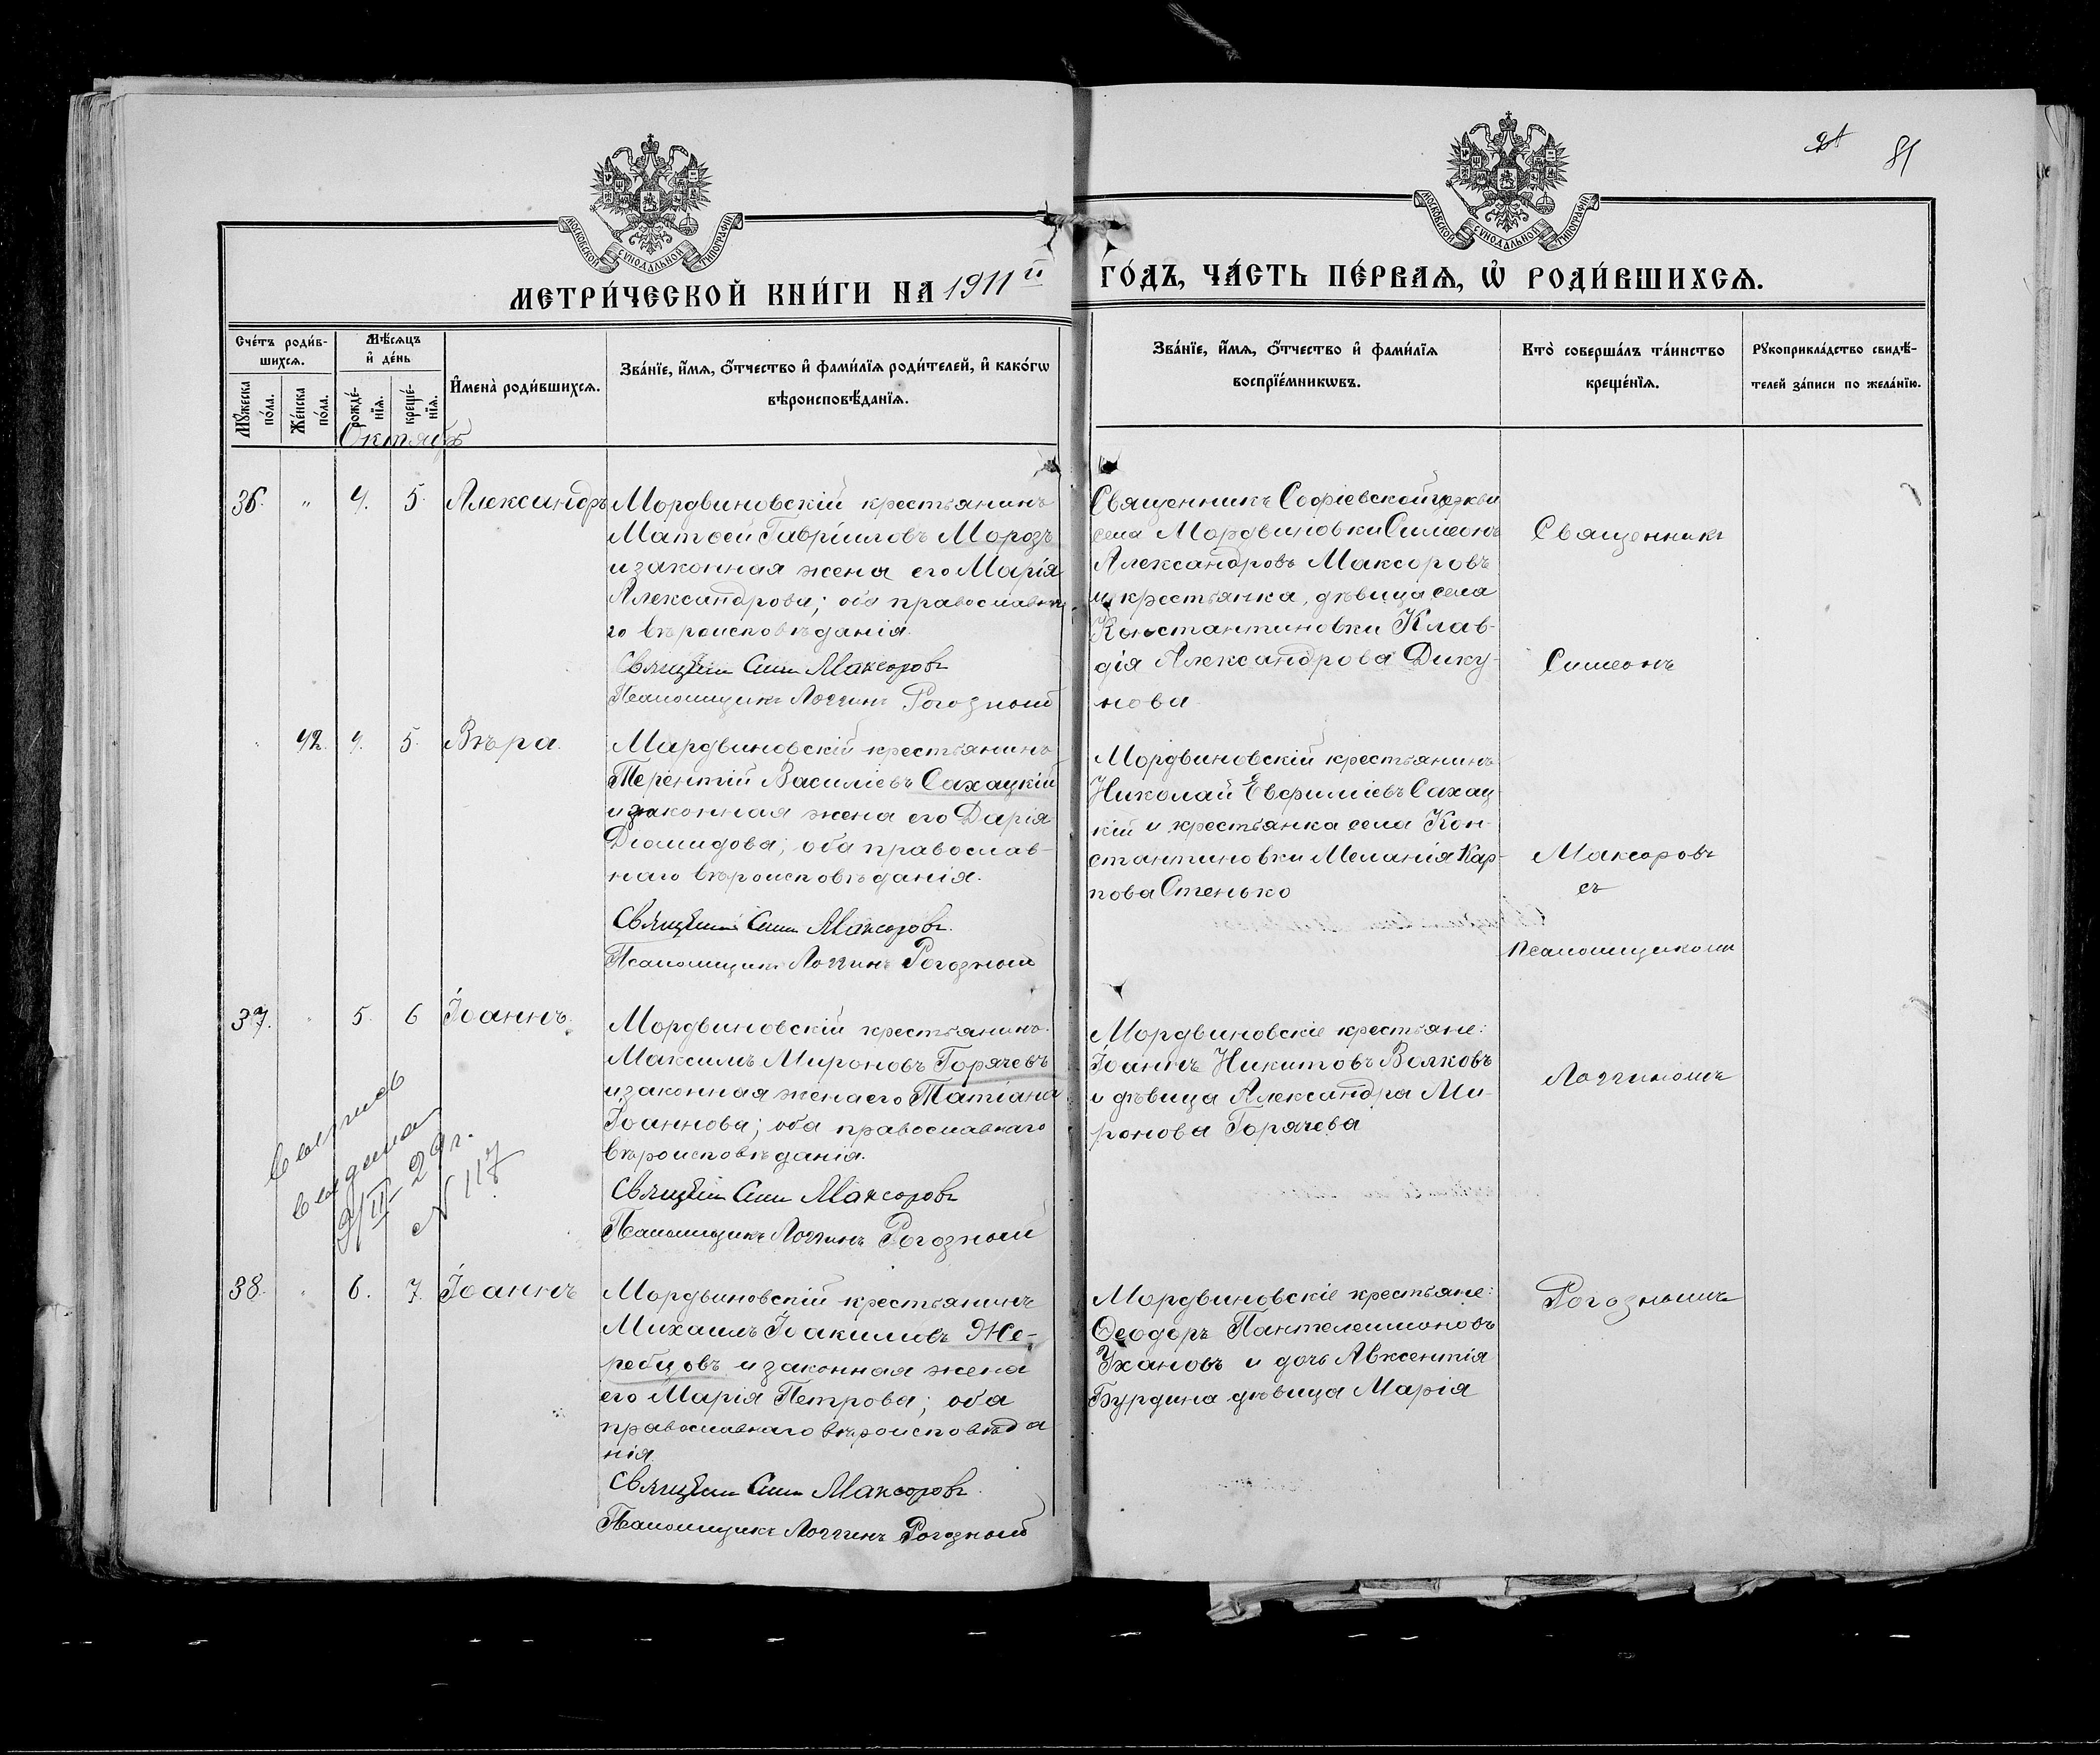 21 81
МОСКОВСКОЙ СѴНОДАЛЬНОЙ ТИПОГРАФІИ
МОСКОВСКОЙ СѴНОДАЛЬНОЙ ТИПОГРАФІИ
МЕТРИ́ЧЕСКОЙ КНИ́ГИ НА 1911й
ГО́ДЪ, ЧА́СТЬ ПЕ́РВАѦ, Ѡ҆ РОДИ́ВШИХСѦ.
Сче́тъ роди́в-
шихсѧ.
Мꙋ́жеска по́ла.
Же́нска по́ла.
Мѣ́сѧцъ
и҆ де́нь
рожде́-нїѧ.
креще́-нїѧ.
И҆мена̀ роди́вшихсѧ.
Зва́нїе, и҆́мѧ, ѻ҆́тчество и҆ фами́лїѧ роди́телей, и҆ како́гѡ
вѣроисповѣ́данїѧ.
Зва́нїе, и҆́мѧ, ѻ҆́тчество и҆ фами́лїѧ
воспрїе́мникѡвъ.
Кто̀ соверша́лъ та́инство
креще́нїѧ.
Рꙋкоприкла́дство свидѣ́-
телей за́писи по жела́нїю.
Октябрь
36. " 4. 5. Александръ
Мордвиновскій крестьянинъ
Матѳей Гавріиловъ Морозъ
и законная жена его Марія
Александрова; оба православна-
го вѣроисповѣданія.
Священникъ Сим. Максоровъ
Псаломщикъ Логгинъ Рогозный
Священникъ Софіевской церкви
села Мордвиновки Симеонъ
Александровъ Максоровъ
и крестьянка, дѣвица села
Константиновки Клав-
дія Александрова Дику-
нова
" 42. 4. 5. Вѣра.
Мардвиновскій крестьянинъ
Терентій Василіевъ Сахацкій
и законная жена его Дарія
Діомидова; оба православ-
наго вѣроисповѣданія.
Священникъ Сим. Максоровъ.
Псаломщикъ Логгинъ Рогозный
Мордвиновскій крестьянинъ
Николай Евфиміевъ Сахац
кій и крестьянка села Кон-
стантиновки Меланія Кар-
пова Стенько
37. " 5. 6 Іоаннъ.
Мордвиновскій крестьянинъ
Максимъ Мироновъ Горячевъ
и законная жена его Татіана
Іоаннова; оба православнаго
вѣроисповѣданія.
Священникъ Сим. Максоровъ
Псаломщикъ Логгинъ Рогозный
Мордвиновскіе крестьяне:
Іоаннъ Никитовъ Волковъ
и дѣвица Александра Ми-
ронова Горячева
выдана
9/II-29г.
N 117
38. " 6. 7. Іоаннъ
Мордвиновскій крестьянинъ
Михаилъ Іоакимовъ Же-
ребцовъ и законная жена
его Марія Петрова; оба
православнаго вѣроисповѣда
нія.
Священникъ Сим. Максоровъ.
Псаломщикъ Логгинъ Рогозный
Мордвиновскіе крестьяне:
Ѳеодоръ Пантелеимоновъ
Ухановъ и дочь Авксентія
Бурдина дѣвица Марія
Священникъ
Симеонъ
Максоровъ
съ
псаломщикомъ
Логгиномъ
Рогознымъ